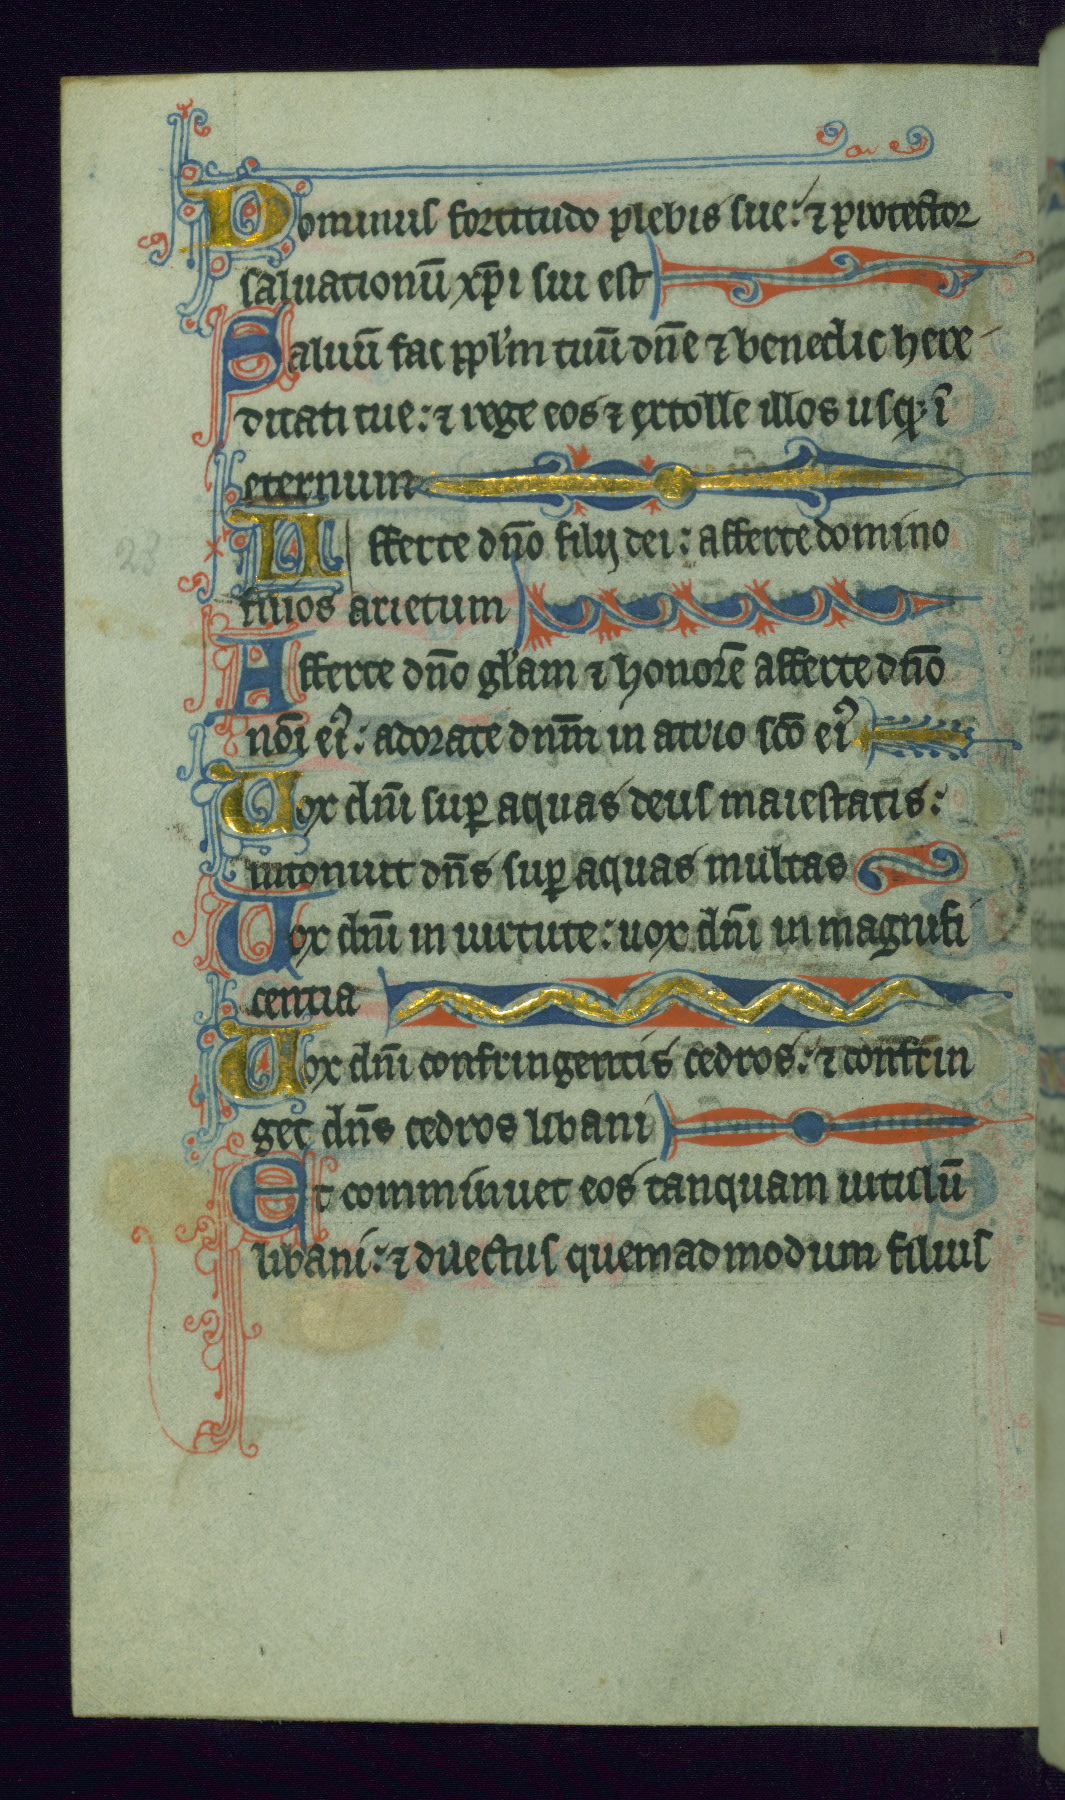 Dominus fortitudo plebis sue: ⁊ protector
saluationū xp̄i sui est
Saluū fac ppl'm tuū dn̄e ⁊ benedic here
ditati tue: ⁊ rege eos ⁊ extolle illos usq; ī
eternum
Afferte dn̄o filij dei: afferte domino
filios arietum
Afferte dn̄o gl'am ⁊ honorē afferte dn̄o
nōi ei': adorate dn̄m in atrio scō ei'
Uox dn̄i sup aquas deus maiestatis:
intonuit dn̄s sup aquas multas
Uox dn̄i in uirtute: uox dn̄i in magnifi
centia
Uox dn̄i confringentis cedros: ⁊ confrin
get dn̄s cedros libani
Et comminuet eos tanquam uitulū
libani: ⁊ dilectus quemadmodum filius